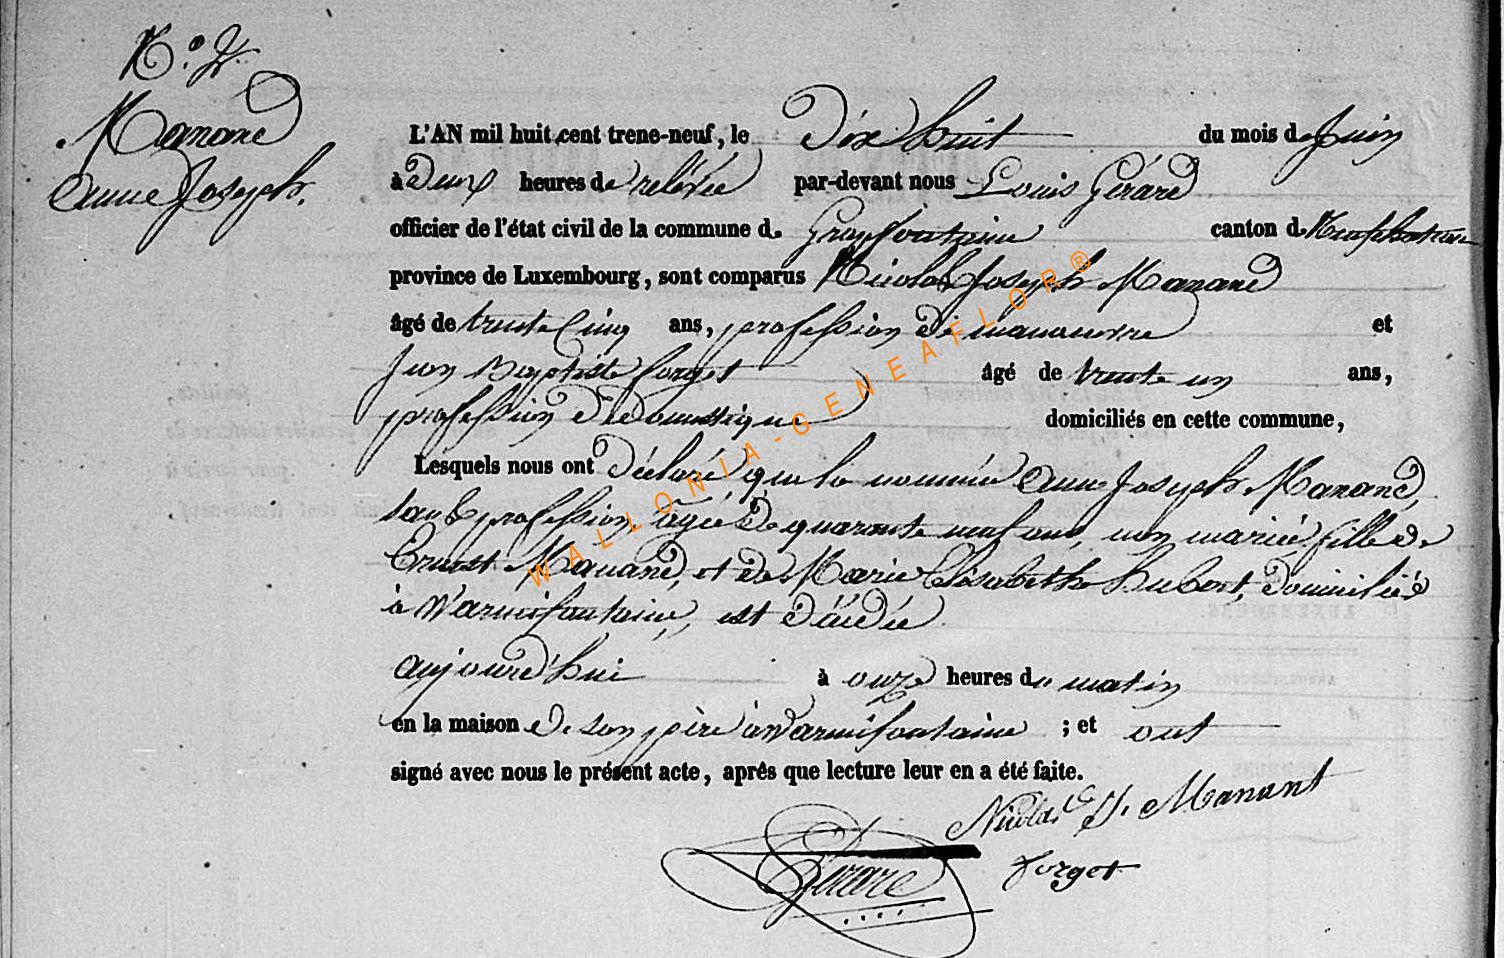 N.°
Manand
Anne Joseph.
L'AN mil huit cent trene-neuf, le Dix huit du mois de Juin
à deux heures de relevée par-devant nous Louis Gérard
officier de l'état civil de la commune de Grapfontaine canton de Neufchateau
province de Luxembourg, sont comparus Nicolas Joseph Manand
âgé de trente Cinq ans, profession de manœuvre et
Jean Baptiste forget âgé de trente un ans,
profession de domestique domiciliés en cette commune,
Lesquels nous ont Déclaré que la nommée Anne Joseph Manand,
sans profession, agée de quarante neuf ans, non mariée, fille de
Ernest Manand, et de Marie Elisabethe hubert, domiciliée
à Warmifontaine, est décédée
aujourd'hui à onze heures du matin
en la maison de son père à Warmifontaine ; et ont
signé avec nous le présent acte, aprés que lecture leur en a été faite.
Nicolas J. Manant
Gérard forget
WALLONIA-GENEAFLOR®